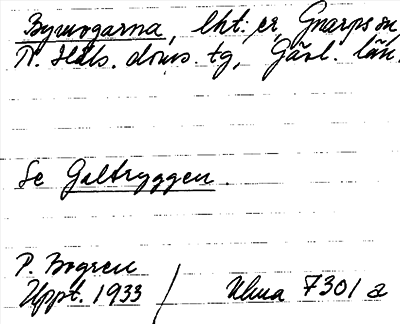 Byrvogarna, lht: er, Gnarps sn,
N. Häls. doms. tg, Gävl. län.
Se Galtryggen.
P. Bogren
Uppt. 1933 / Ulma 7301 a